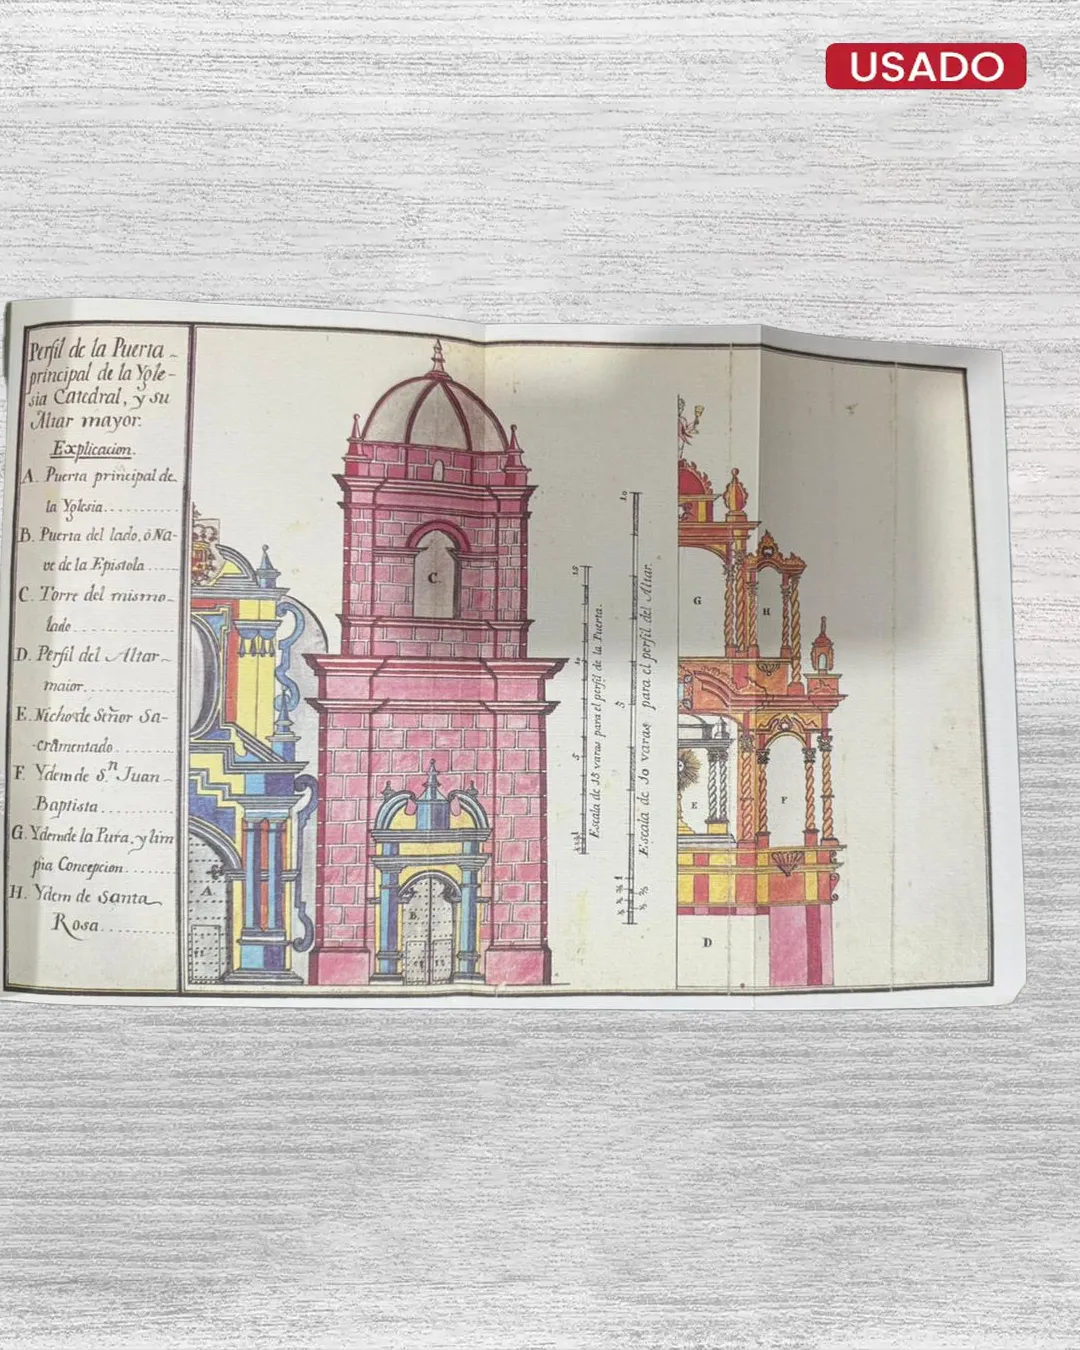 USADO
Perfil de la Puerta
principal de la Ygle-
sia Catedral, y su
Altar mayor.
Explicacion.
A. Puerta principal de
la Yglesia
B. Puerta del lado, ó Na-
ve de la Epistola
C. Torre del mismo
lado
D. Perfil del Altar
maior
E. Nicho de Señor Sa-
cramentado
F. Ydem de S.n Juan
Baptista
G. Ydem de la Pura, y lim
pia Concepcion
H. Ydem de Santa
Rosa
A
B
C
Escala de 15 varas para el perfil de la Puerta.
15
10
5
1
Escala de 10 varas para el perfil del Altar.
10
5
1
G
H
E
F
D